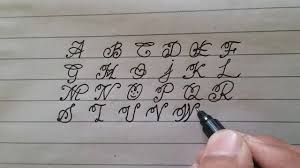 A B C D E F
G H I J K L
M N O P Q R
S T U V W